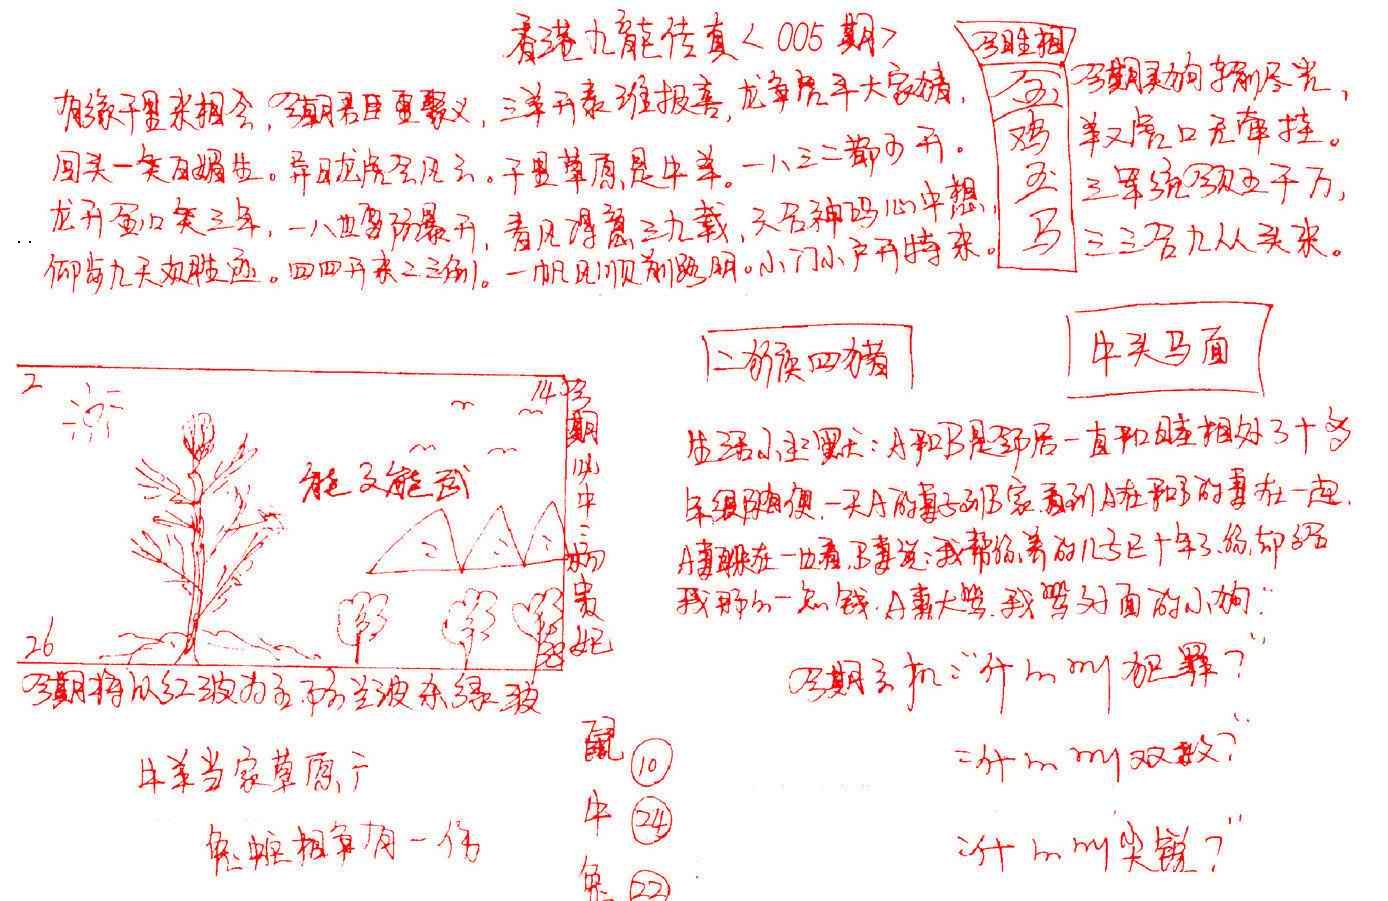 香港九龍传真<005期>
有缘千里来相会，今期君臣重聚义，三羊开泰难报喜，龙争虎斗大家猜，
回头一笑百媚生。异日龙虎会风云。千里草原是牛羊。一八三二都可开。
龙开金口笑三年，一八四零防暴开，春风得意三九载，天合神码心中想，
仰首九天观胜迹。四四开来二三倒。一帆风顺前路明。小门小户开特来。
今期生相
金
鸡
玉
马
今期灵狗转前尽光，
羊入虎口无牵挂。
三军统领五千万，
三三合九从头来。
二猴四猪
牛头马面
2
14
26
38
能文能武
今期以中三期贵妃
今期特以红波为主不利兰波杀绿波
牛羊当家草原广
兔蛇相争有一伤
鼠 10
牛 24
兔 22
生活小幽默：A和B是邻居一直和睦相处了十多
年。一天A的妻子到B家，看到A在和B的妻在一起，
A妻躲在一边看，B妻说：我帮你养的儿子已十年了，你却给
我那么一点钱，A妻大骂，我骂对面的小狗。
今期玄机：“什么叫犯罪？”
：“什么叫双数？”
：“什么叫尖锐？”